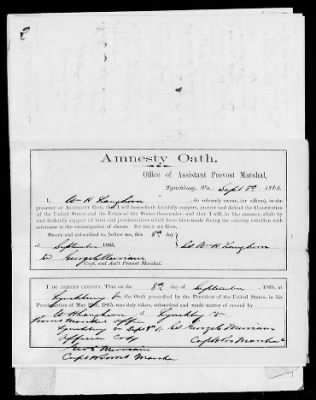 2
Amnesty Oath.
Office of Assistant Provost Marshal,
Lynchburg, Va., Sept 8th 1865.
I, W H Langhorn, do solemnly swear, (or affirm), in the
presence of ALMIGHTY GOD, that I will henceforth faithfully support, protect and defend the Constitution
of the United States and the Union of the States thereunder, and that I will, in like manner, abide by
and faithfully support all laws and proclamations which have been made during the existing rebellion
with reference to the emancipation of slaves. SO HELP ME GOD.
Sworn and subscribed to, before me, this 8th day
of September 1865. Sd W H Langhorn
Sd George B Merriam
Capt. and Ass't Provost Marshal.
I DO HEREBY CERTIFY, That on the 8th day of September, 1865, at
Lynchburg Va the Oath prescribed by the President of the United States, in his
Proclamation of May 29th, 1865, was duly taken, subscribed and made matter of record by
W H Langhorn at Lynchburg Va
Provost Marshal office
Lynchburg Va Sept 8th Sd George B Merriam
Official Copy Capt Pro Marshal
Geo B Merriam
Capt Provost Marshal